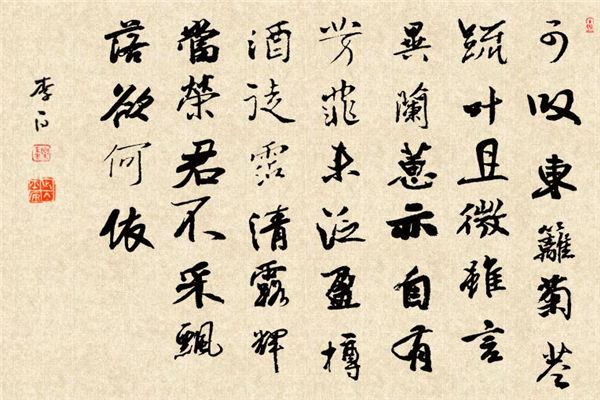 可叹東籬菊茎
疏叶且微雖言
異蘭蕙亦自有
芳菲未泛盈樽
酒徒霑清露輝
當榮君不采飄
落欲何依
李白